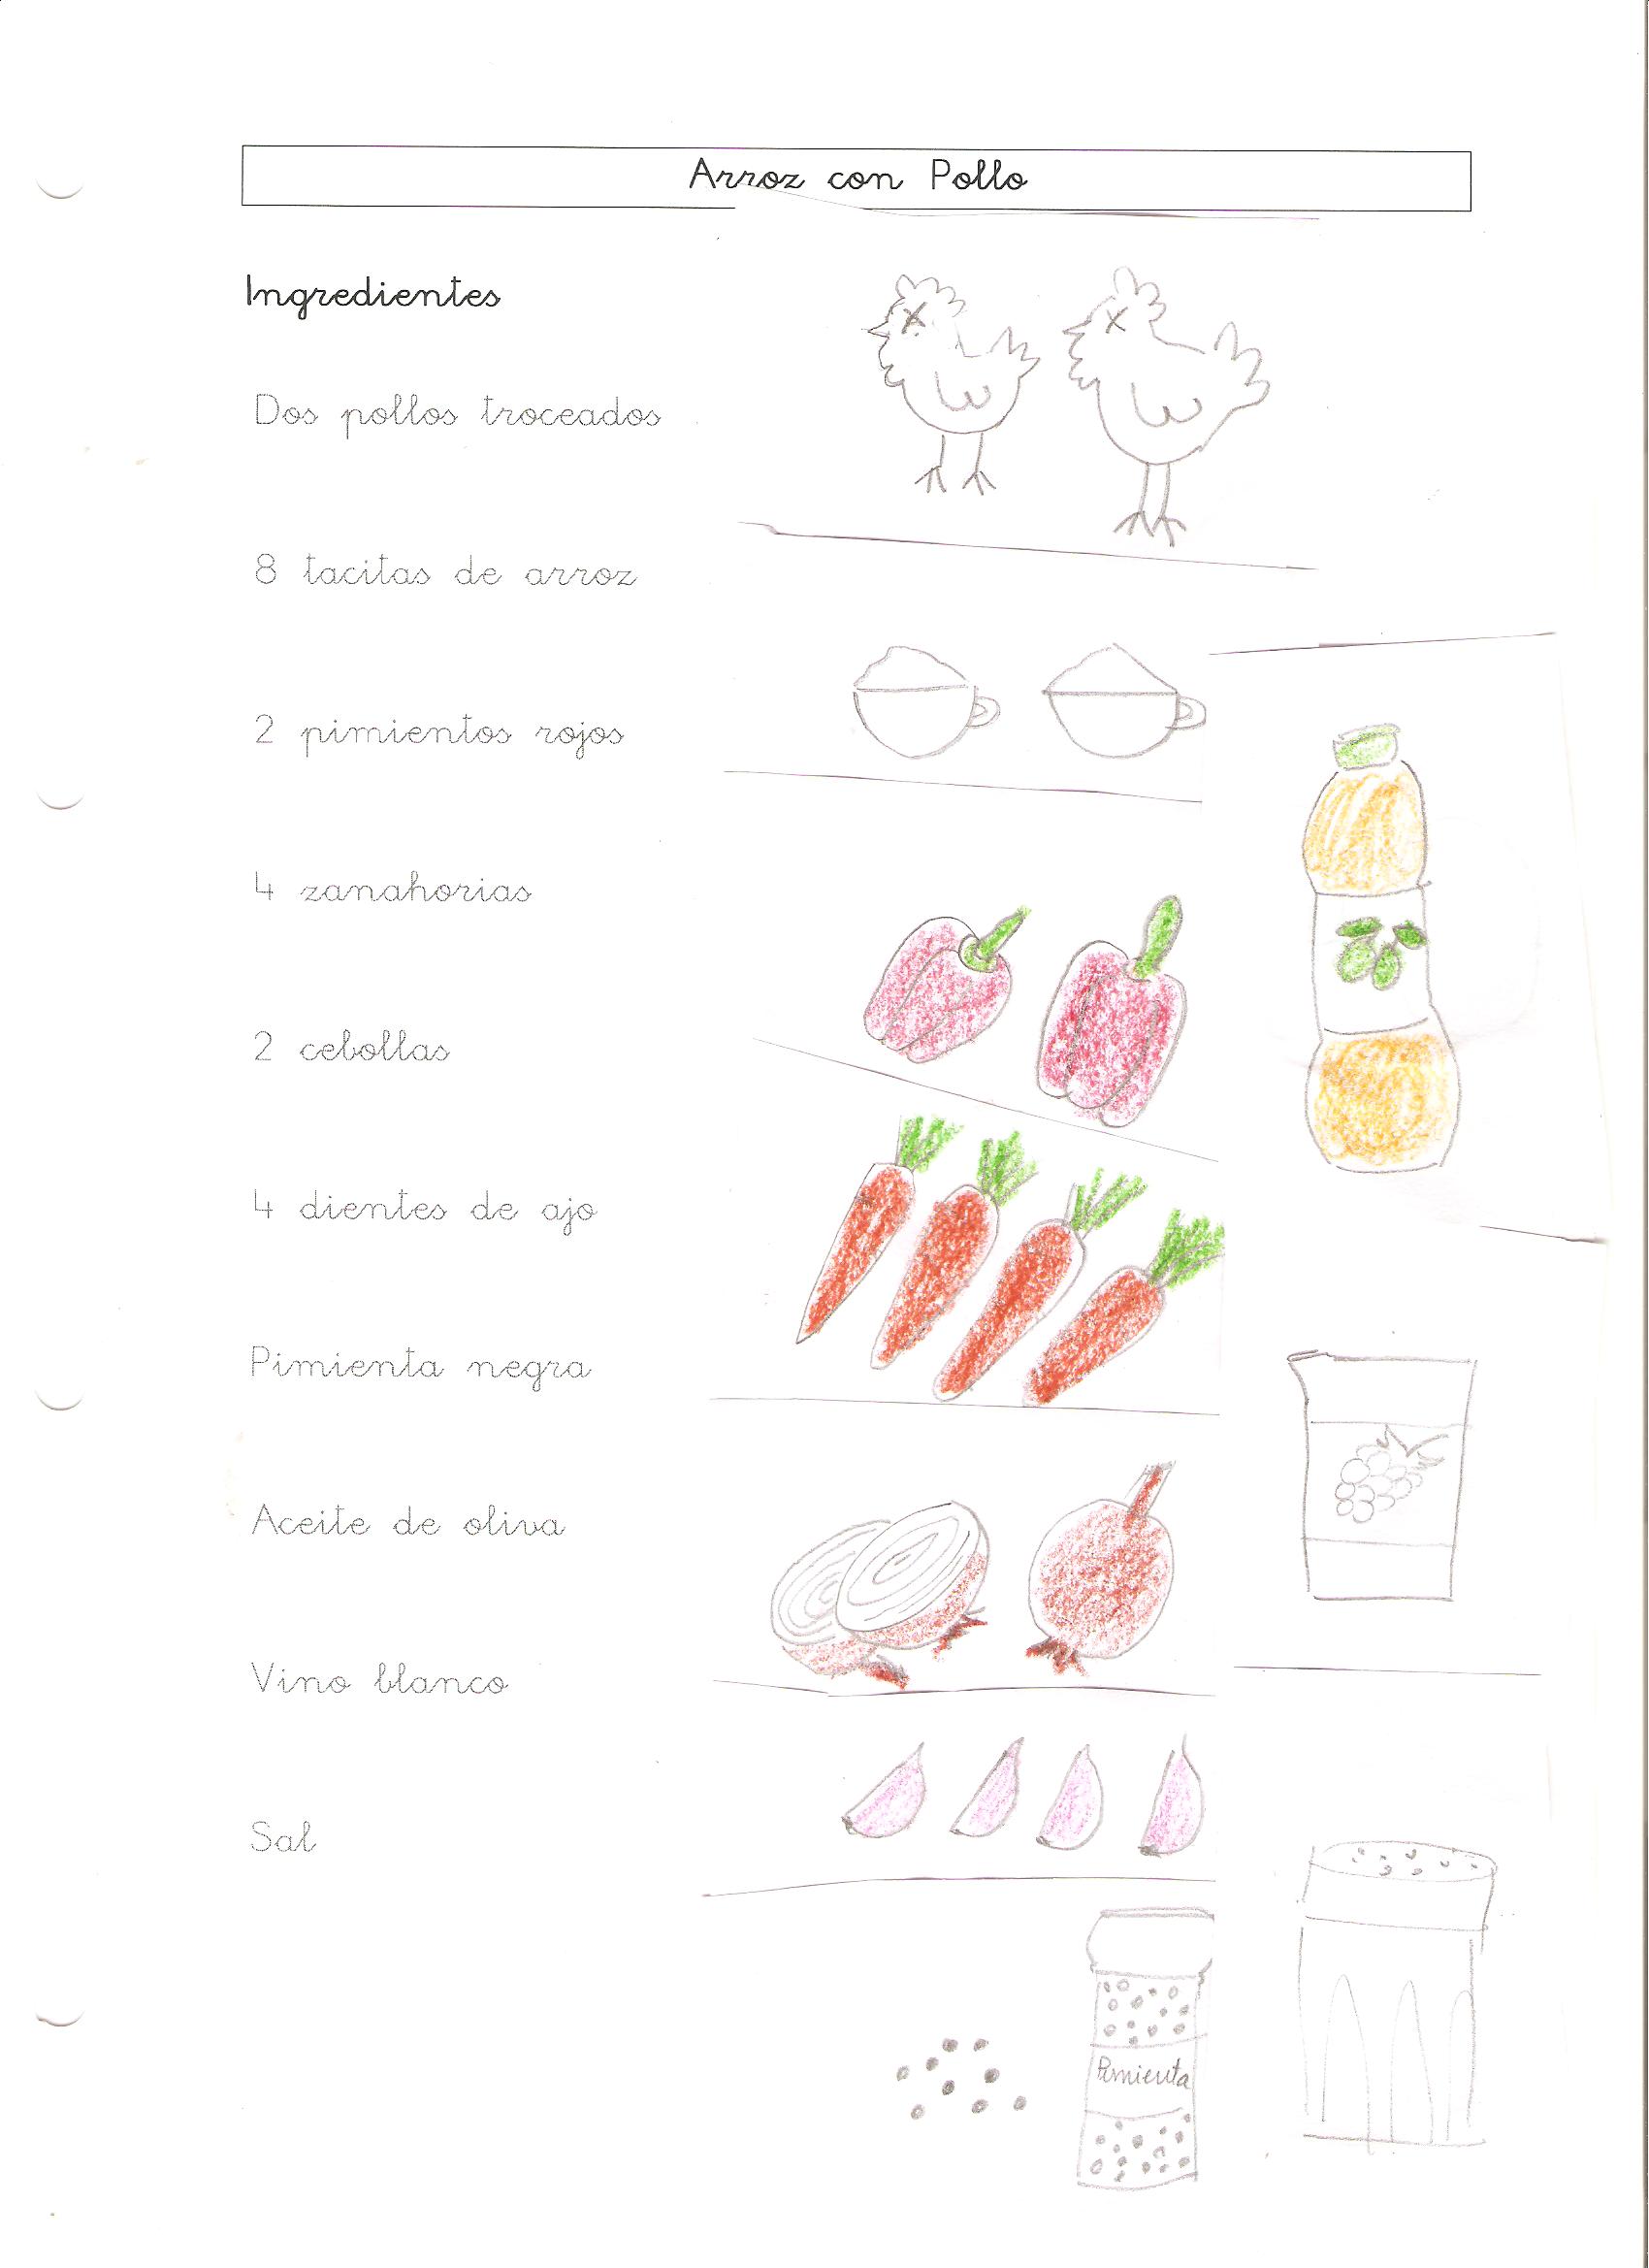 Arroz con Pollo
Ingredientes
Dos pollos troceados
8 tacitas de arroz
2 pimientos rojos
4 zanahorias
2 cebollas
4 dientes de ajo
Pimienta negra
Aceite de oliva
Vino blanco
Sal
Pimienta